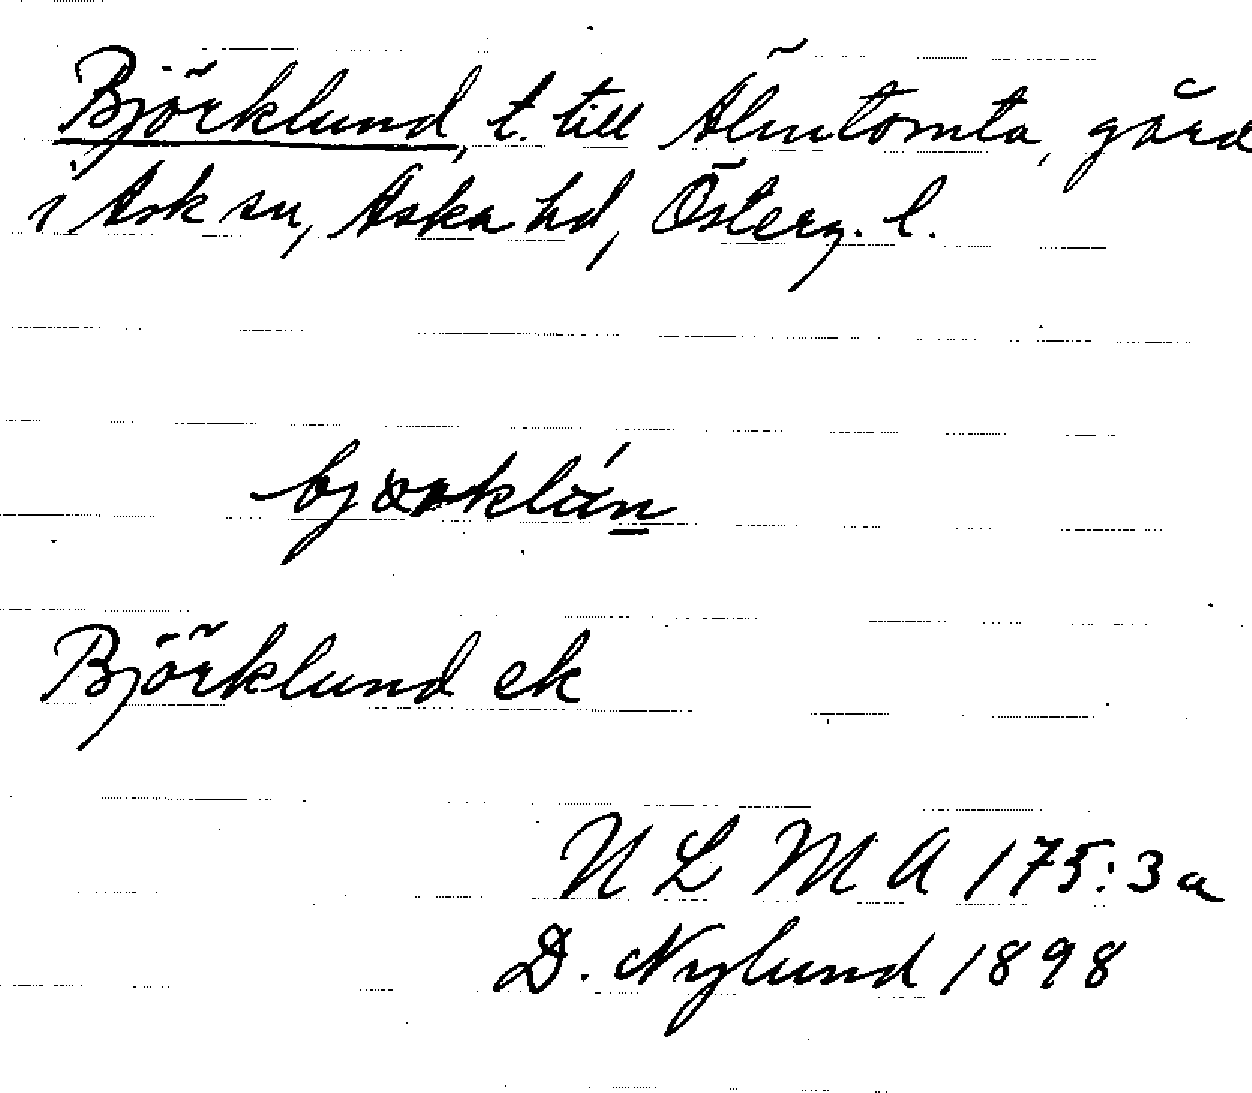 Björklund, t. till Älmtomta, gård
i Ask sn, Aska hd, Österg. l.
Björklund ek
N L M A 175:3a
D. Nylund 1898